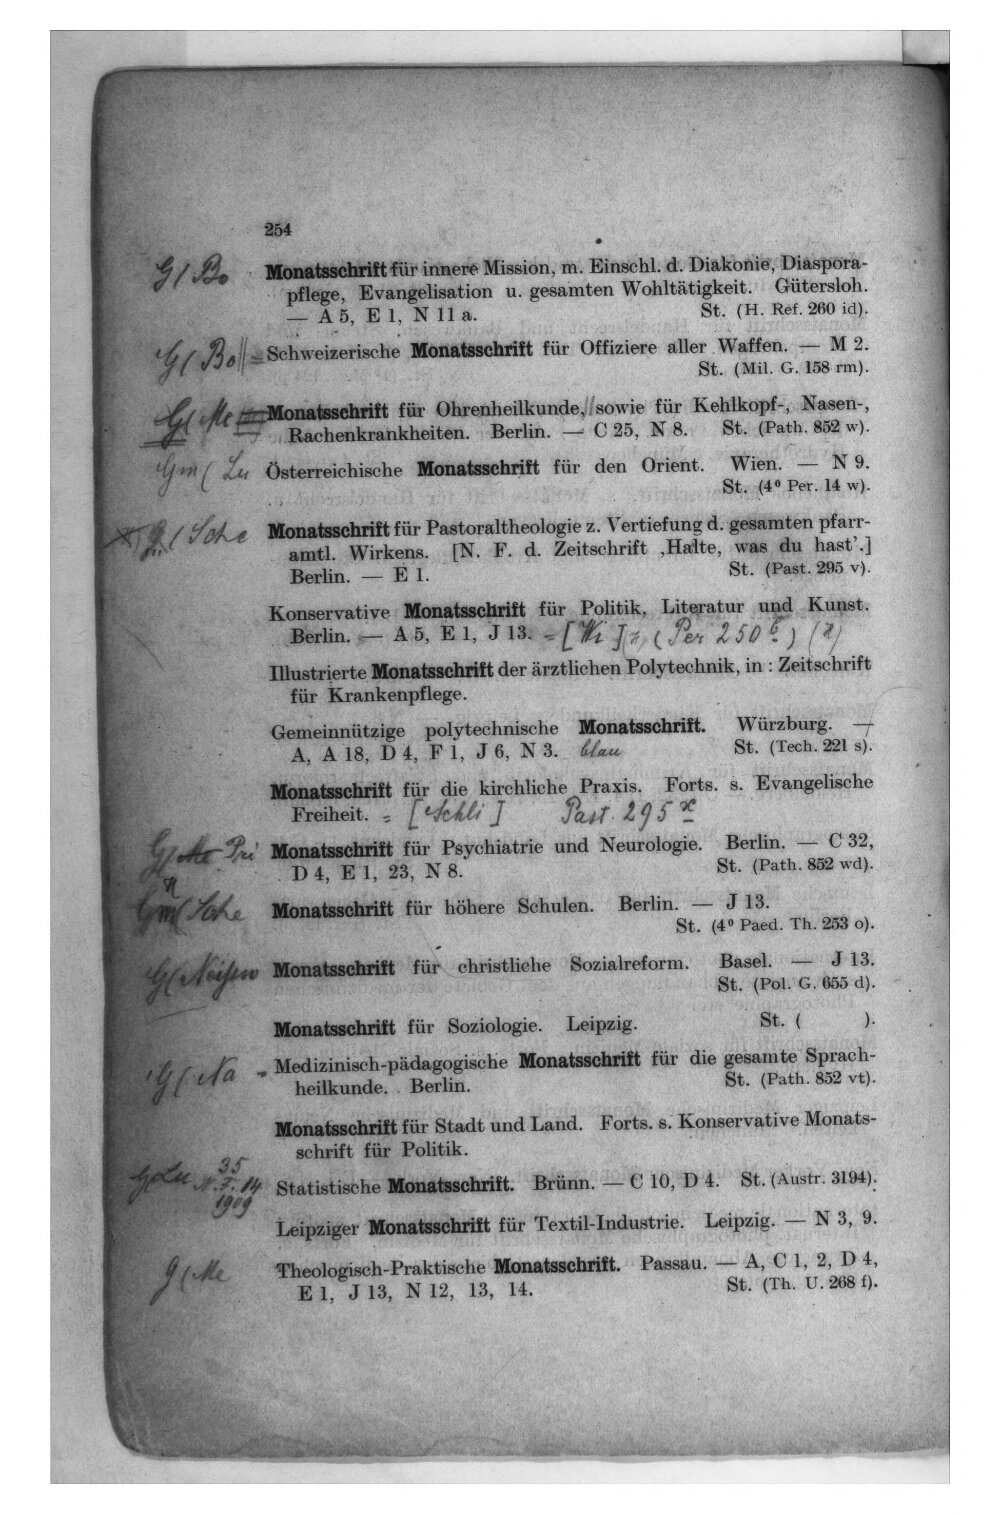 254
G/ Bo Monatsschrift für innere Mission, m. Einschl. d. Diakonie, Diaspora-
pflege, Evangelisation u. gesamten Wohltätigkeit. Gütersloh.
— A 5, E 1, N 11 a. St. (H. Ref. 260 id).
G/ Bo Schweizerische Monatsschrift für Offiziere aller Waffen. — M 2.
St. (Mil. G. 158 rm).
G/ Me Monatsschrift für Ohrenheilkunde, sowie für Kehlkopf-, Nasen-,
Rachenkrankheiten. Berlin. — C 25, N 8. St. (Path. 852 w).
Gm ( Lu Österreichische Monatsschrift für den Orient. Wien. — N 9.
St. (4º Per. 14 w).
( Sche Monatsschrift für Pastoraltheologie z. Vertiefung d. gesamten pfarr-
amtl. Wirkens. [N. F. d. Zeitschrift ‚Halte, was du hast‘.]
Berlin. — E 1. St. (Past. 295 v).
Konservative Monatsschrift für Politik, Literatur und Kunst.
Berlin. — A 5, E 1, J 13. = [Wi] (Per 250 )
Illustrierte Monatsschrift der ärztlichen Polytechnik, in: Zeitschrift
für Krankenpflege.
Gemeinnützige polytechnische Monatsschrift. Würzburg. —
A, A 18, D 4, F 1, J 6, N 3. blau St. (Tech. 221 s).
Monatsschrift für die kirchliche Praxis. Forts. s. Evangelische
Freiheit. = [Schli] Past. 295 x
G/ Pri Monatsschrift für Psychiatrie und Neurologie. Berlin. — C 32,
D 4, E 1, 23, N 8. St. (Path. 852 wd).
Gm( Sche Monatsschrift für höhere Schulen. Berlin. — J 13.
St. (4º Paed. Th. 253 o).
G( Monatsschrift für christliche Sozialreform. Basel. — J 13.
St. (Pol. G. 655 d).
Monatsschrift für Soziologie. Leipzig. St. ( ).
G( Na Medizinisch-pädagogische Monatsschrift für die gesamte Sprach-
heilkunde. Berlin. St. (Path. 852 vt).
Monatsschrift für Stadt und Land. Forts. s. Konservative Monats-
schrift für Politik.
G( Lu 35 14 1909 Statistische Monatsschrift. Brünn. — C 10, D 4. St. (Austr. 3194).
Leipziger Monatsschrift für Textil-Industrie. Leipzig. — N 3, 9.
G( Me Theologisch-Praktische Monatsschrift. Passau. — A, C 1, 2, D 4,
E 1, J 13, N 12, 13, 14. St. (Th. U. 268 f).